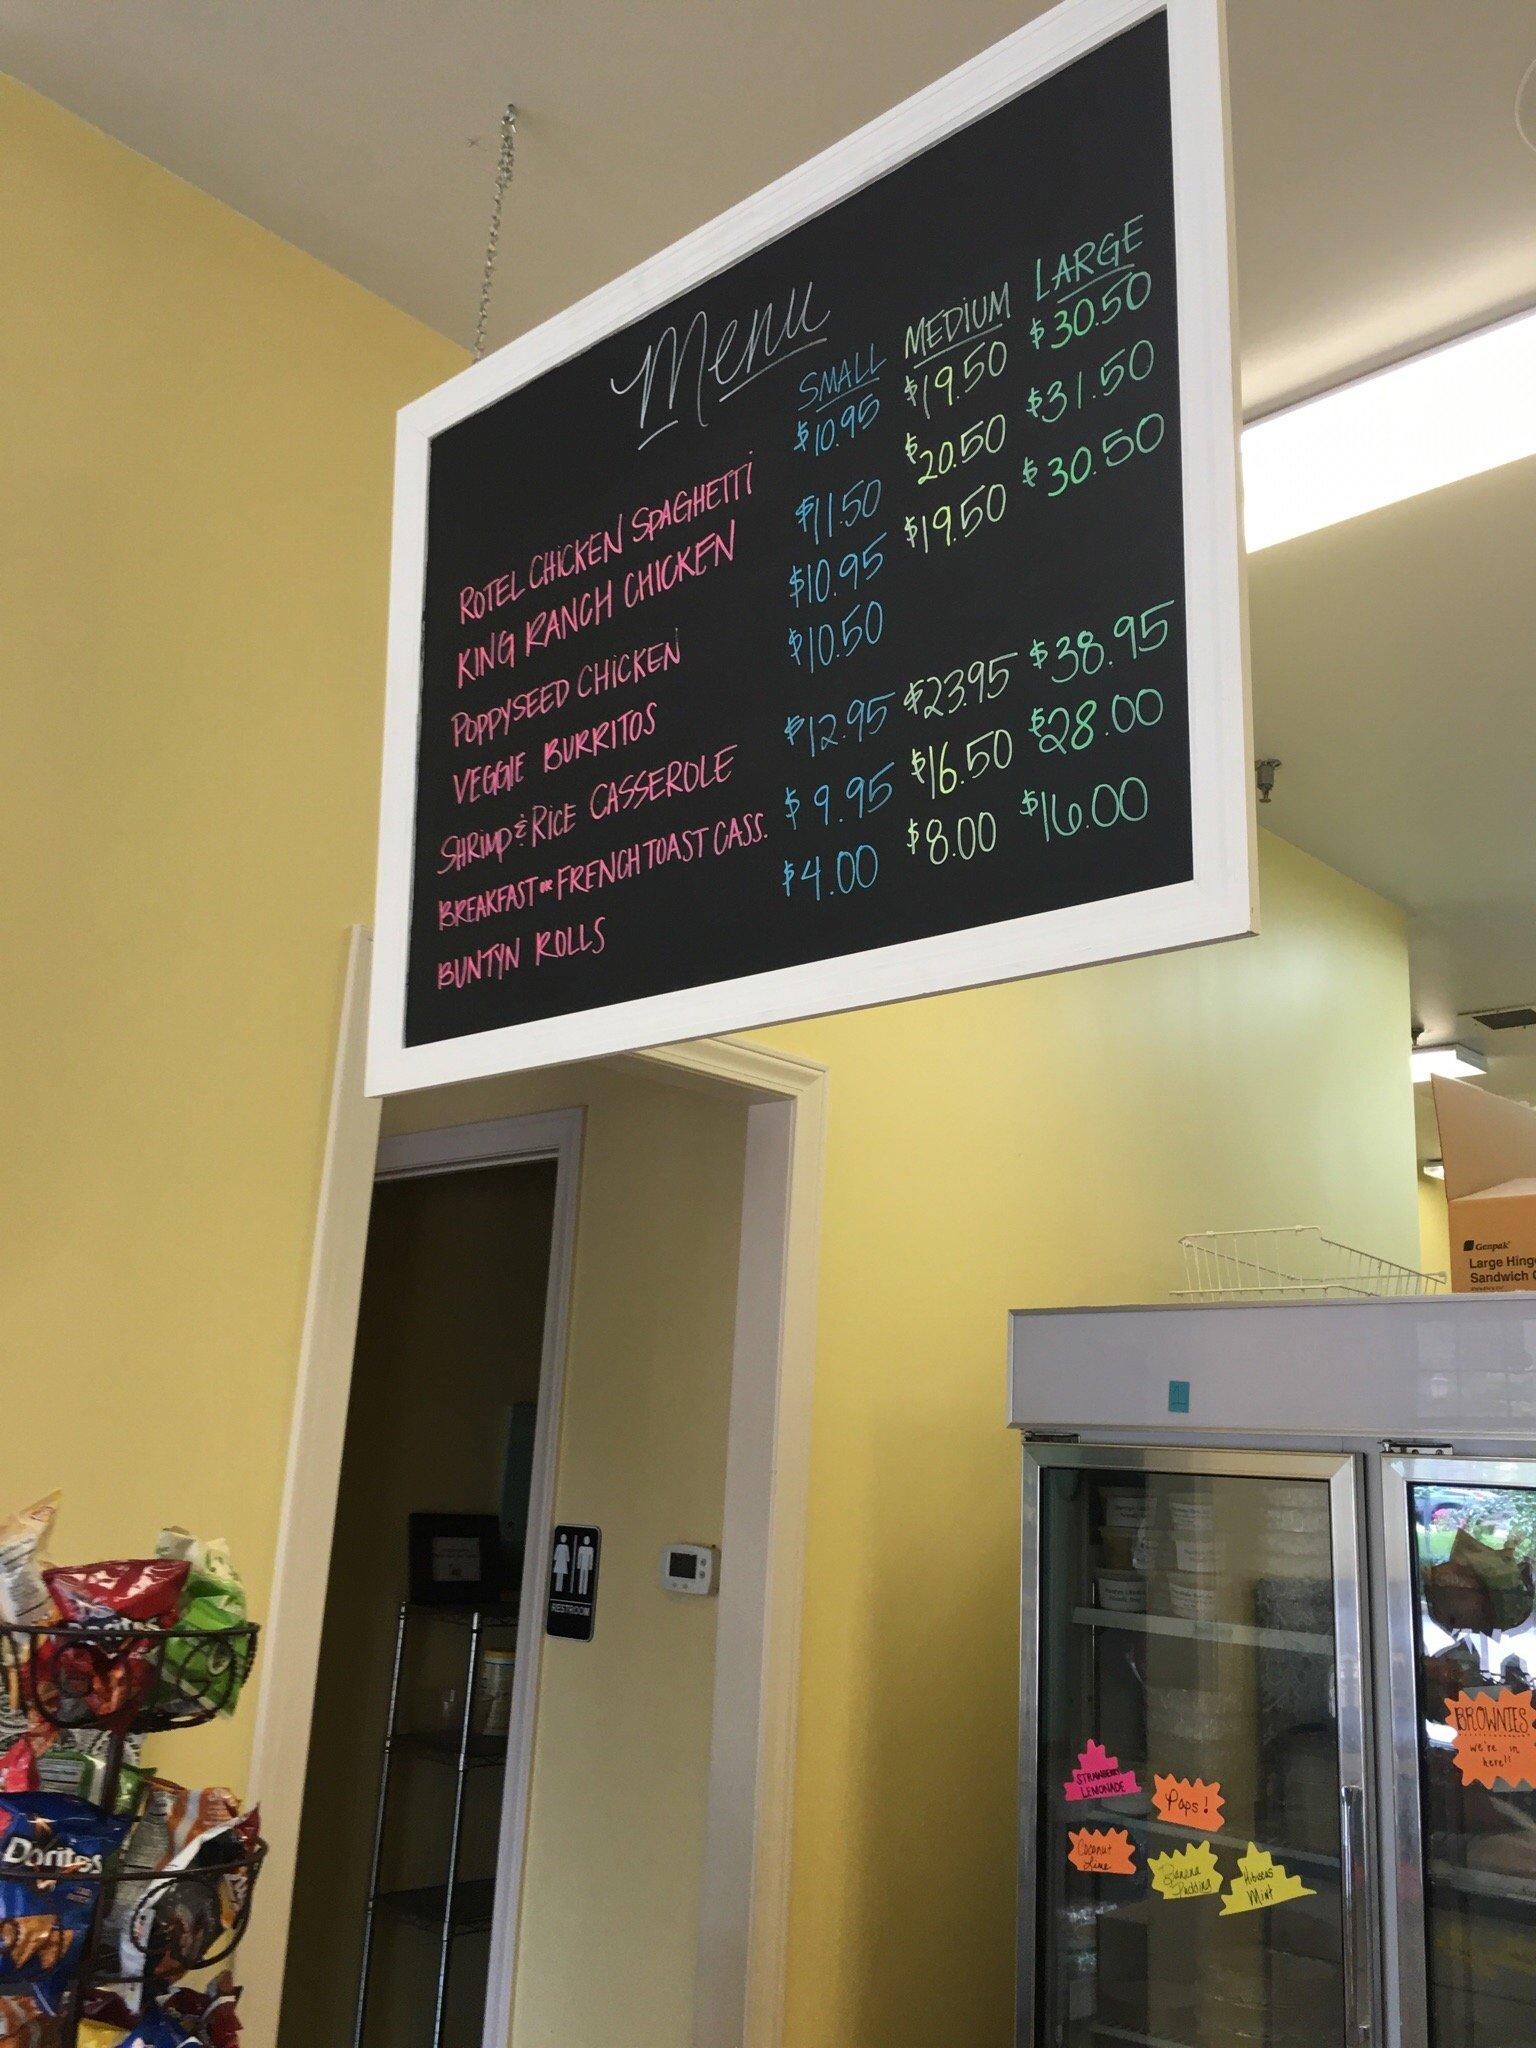 Menu
SMALL MEDIUM LARGE
ROTEL CHICKEN SPAGHETTI $10.95 $19.50 $30.50
KING RANCH CHICKEN $11.50 $20.50 $31.50
POPPYSEED CHICKEN $10.95 $19.50 $30.50
VEGGIE BURRITOS $10.50
SHRIMP & RICE CASSEROLE $12.95 $23.95 $38.95
BREAKFAST OR FRENCH TOAST CASS. $9.95 $16.50 $28.00
BUNTYN ROLLS $4.00 $8.00 $16.00
Genpak
Large Hing
Sandwich
1
RESTROOM
Doritos
Doritos
STRAWBERRY
LEMONADE
Pops!
Coconut
Lime
Banana
Pudding
Hibiscus
Mint
BROWNIES
we're in
here!!